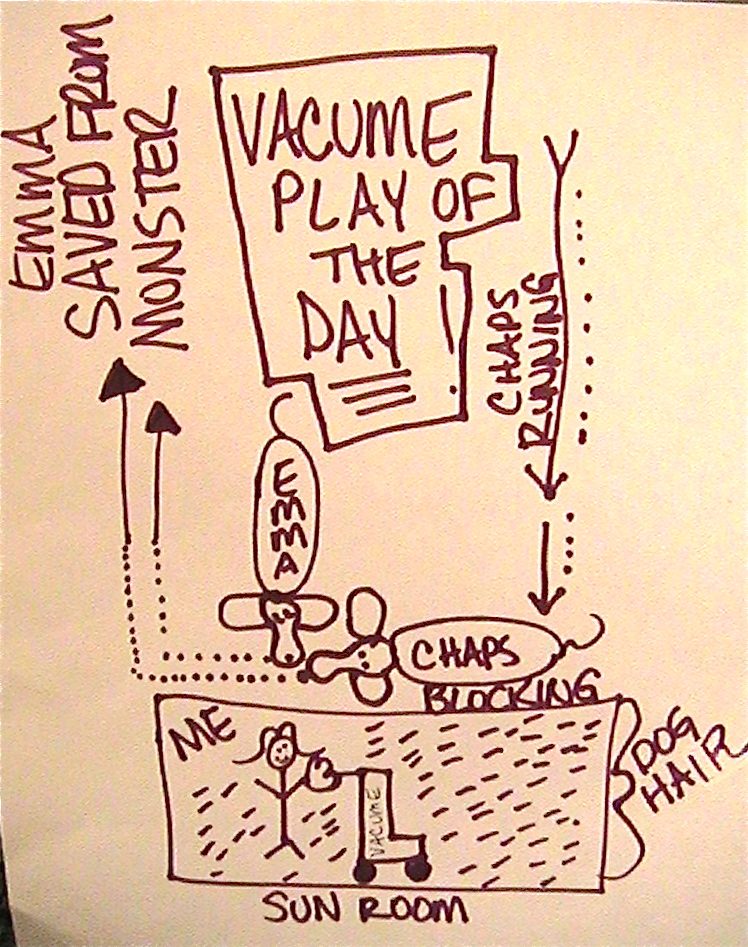 VACUME
PLAY OF
THE
DAY
EMMA
SAVED FROM
MONSTER
CHAPS
RUNNING
EMMA
CHAPS
BLOCKING
ME
VACUME
DOG
HAIR
SUN ROOM